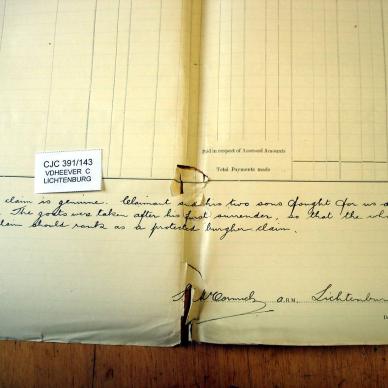 paid in respect of Assessed Amounts
Total Payments made
CJC 391/143
VDHEEVER C
LICHTENBURG
claim is genuine. Claimant and his two sons fought for us
The goats were taken after his first surrender, so that the
claim should rank as a protected burgher claim.
McCormick A.R.M. Lichtenbur